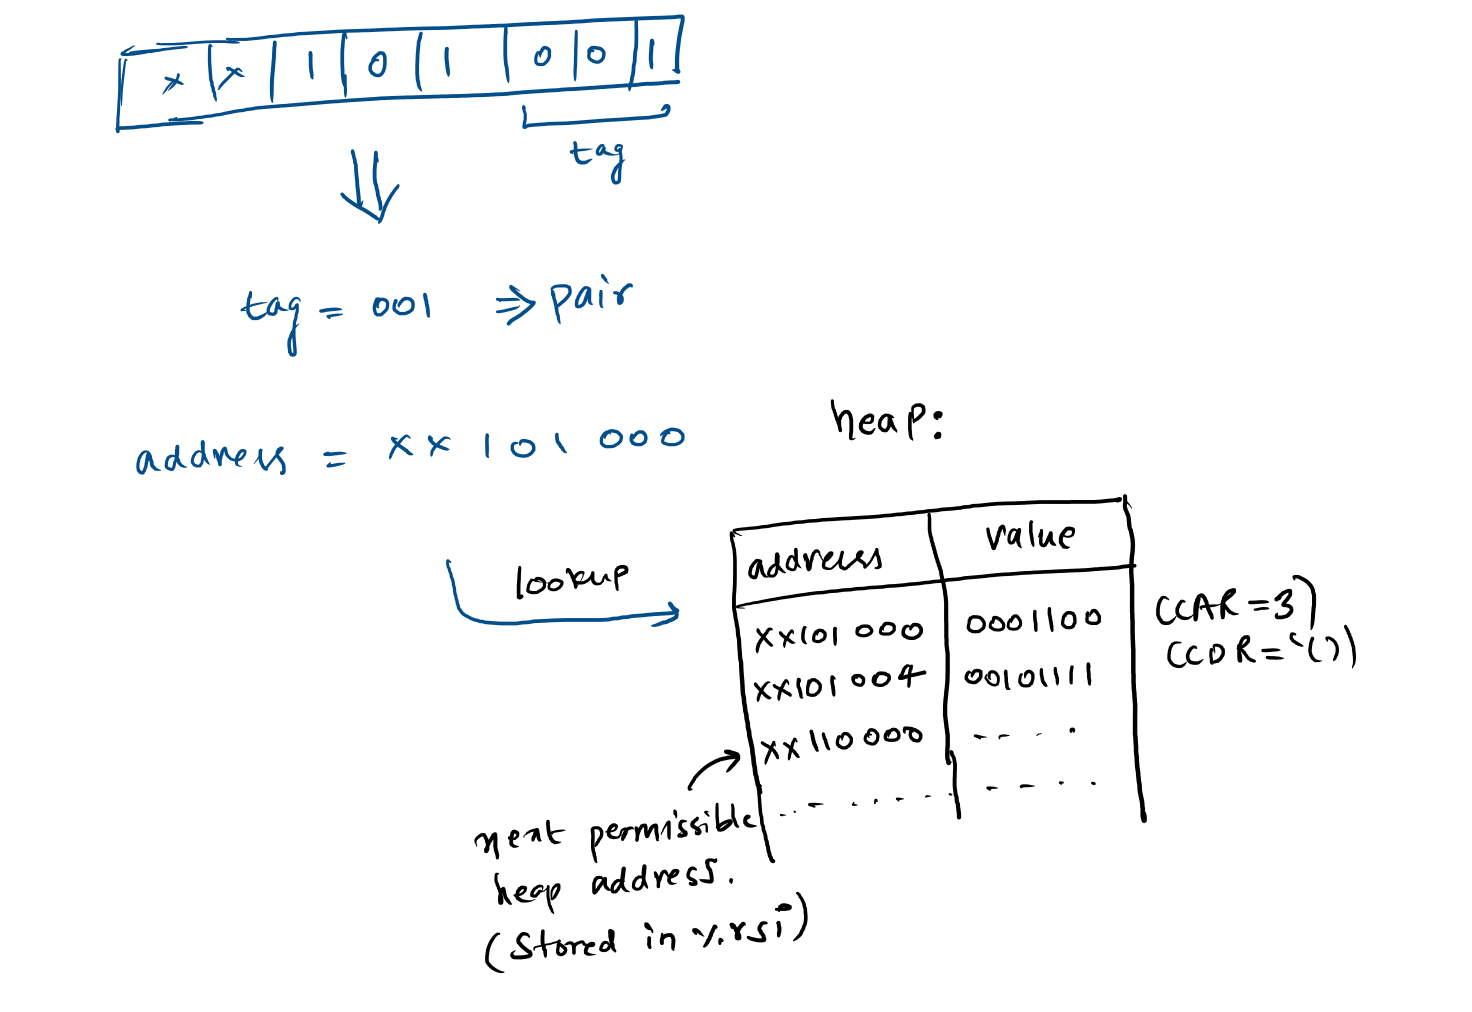 x x 1 0 1 0 0 1
tag
tag = 001 ⇒ pair
address = xx 101 000
heap:
lookup
address value
xx101 000 0001100
(CAR = 3)
xx101 004 00101111
(CDR = '())
xx 110 000 - - - -
- - - - - - - - - -
next permissible
heap address.
(Stored in %rsi)